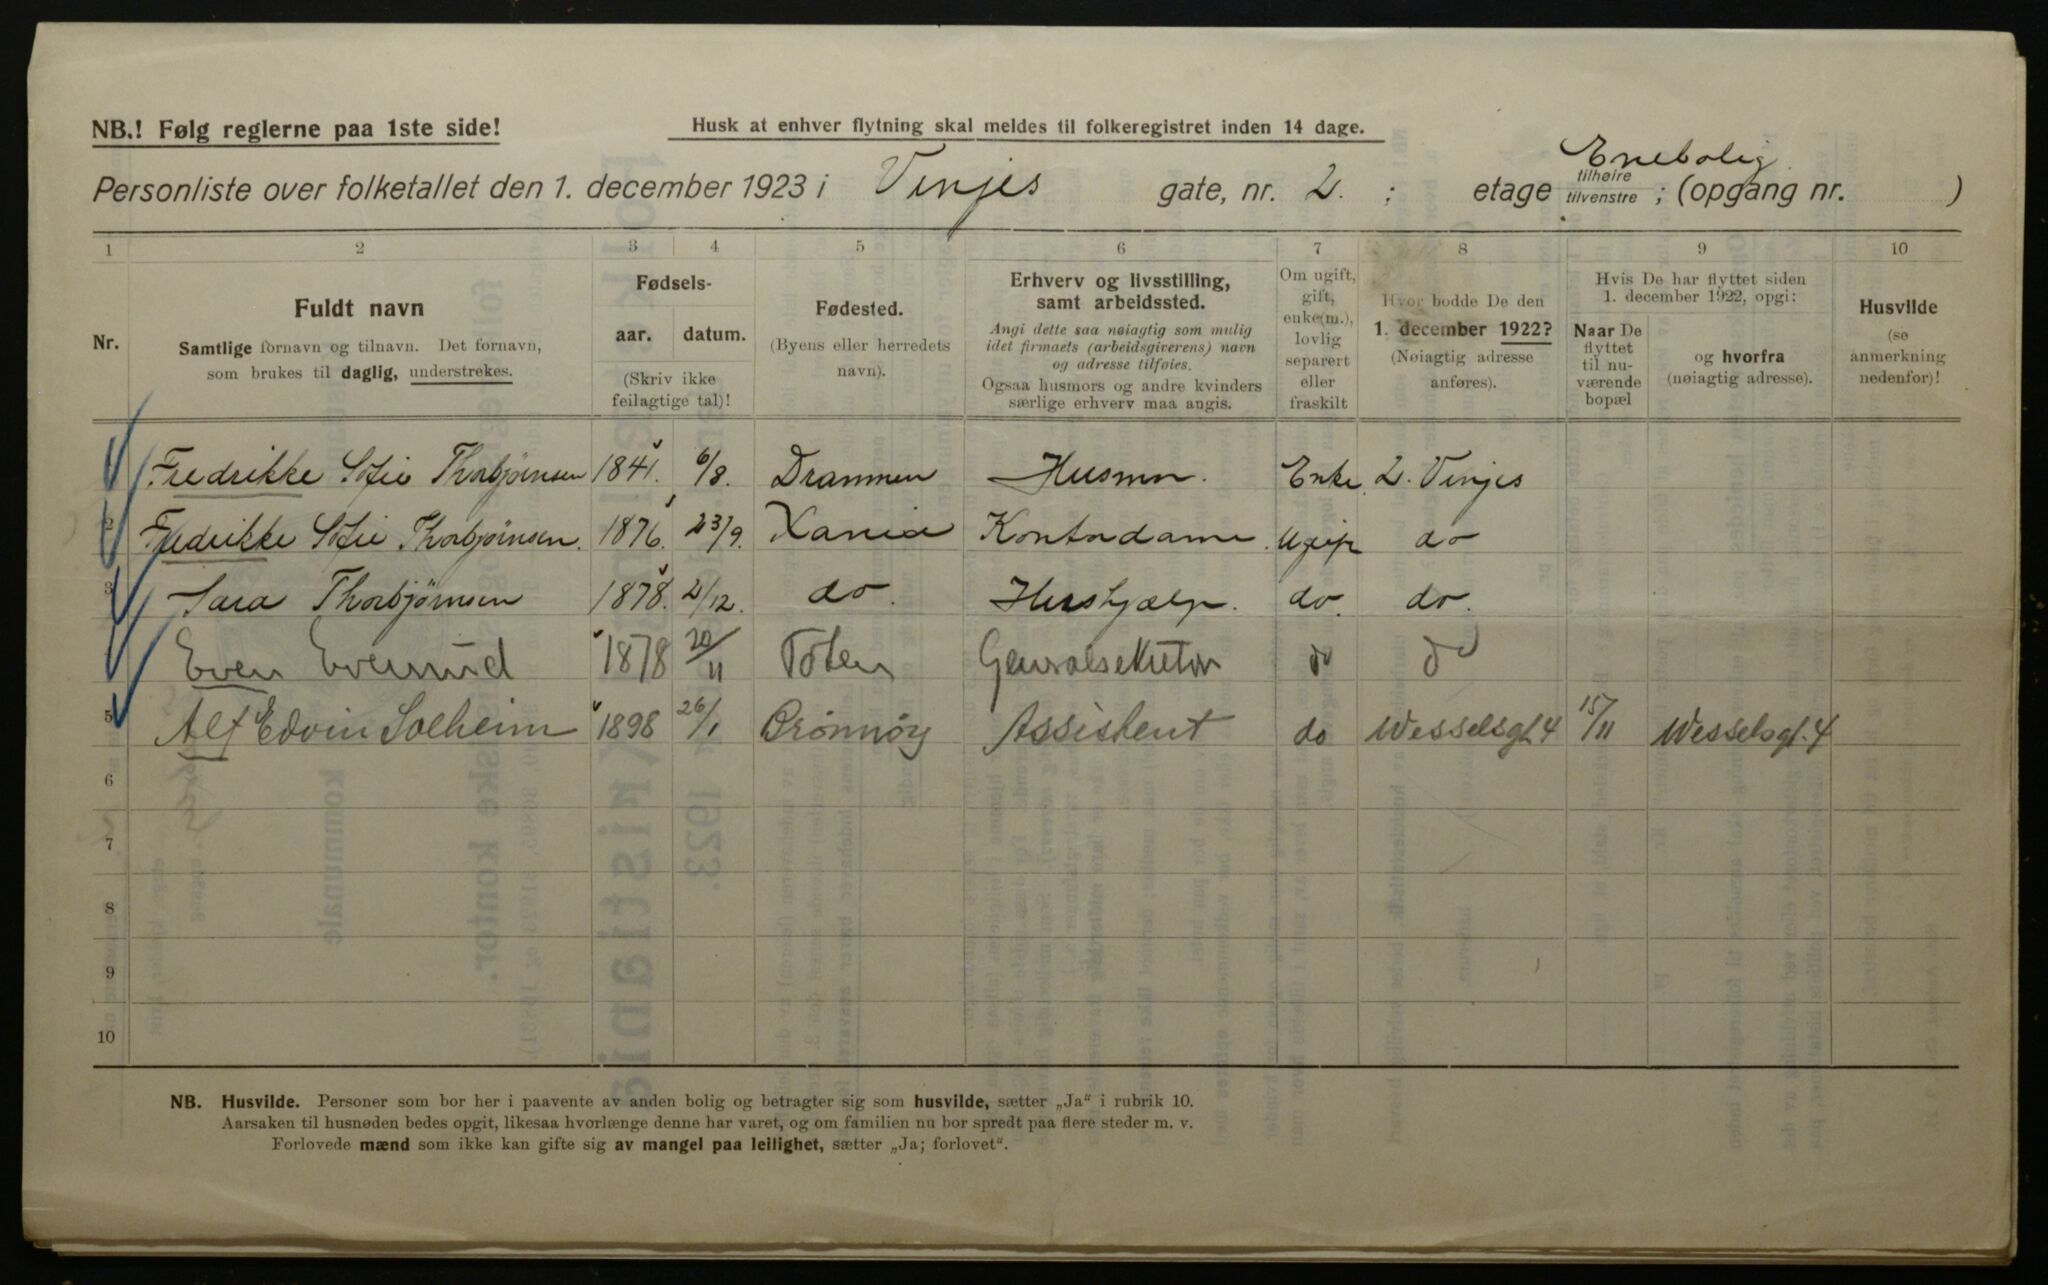 NB.! Følg reglerne paa 1ste side!
Husk at enhver flytning skal meldes til folkeregistret inden 14 dage.
Personliste over folketallet den 1. december 1923 i Vinjes gate, nr. 2. ; etage tilhøire tilvenstre ; (opgang nr. )
Enebolig
1 2 3 4 5 6 7 8 9 10
Nr.
Fuldt navn
Samtlige fornavn og tilnavn. Det fornavn,
som brukes til daglig, understrekes.
Fødsels-
aar. datum.
(Skriv ikke
feilagtige tal)!
Fødested.
(Byens eller herredets
navn).
Erhverv og livsstilling,
samt arbeidssted.
Angi dette saa nøiagtig som mulig
idet firmaets (arbeidsgiverens) navn
og adresse tilføies.
Ogsaa husmors og andre kvinders
særlige erhverv maa angis.
Om ugift,
gift,
enke(m.),
lovlig
separert
eller
fraskilt
Hvor bodde De den
1. december 1922?
(Nøiagtig adresse
anføres).
Hvis De har flyttet siden
1. december 1922, opgi:
Naar De
flyttet
til nu-
værende
bopæl
og hvorfra
(nøiagtig adresse).
Husvilde
(se
anmerkning
nedenfor)!
Fredrikke Sofie Thorbjørnsen 1841. 6/8. Drammen Husmor. Enke. 2. Vinjes
2 Fredrikke Sofie Thorbjørnsen. 1876. 23/9. Xania Kontordame. Ugift do
3 Sara Thorbjørnsen 1878. 2/12. do. Hushjælp. do. do.
Even Evensrud 1878 20/11 Toten Generalsekretær do do
5 Alf Edvin Solheim 1898 26/1 Brönnöy Assistent do Wesselsgt 4 15/11 Wesselsgt. 4
6
7
8
9
10
NB. Husvilde. Personer som bor her i paavente av anden bolig og betragter sig som husvilde, sætter „Ja“ i rubrik 10.
Aarsaken til husnøden bedes opgit, likesaa hvorlænge denne har varet, og om familien nu bor spredt paa flere steder m. v.
Forlovede mænd som ikke kan gifte sig av mangel paa leilighet, sætter „Ja; forlovet“.